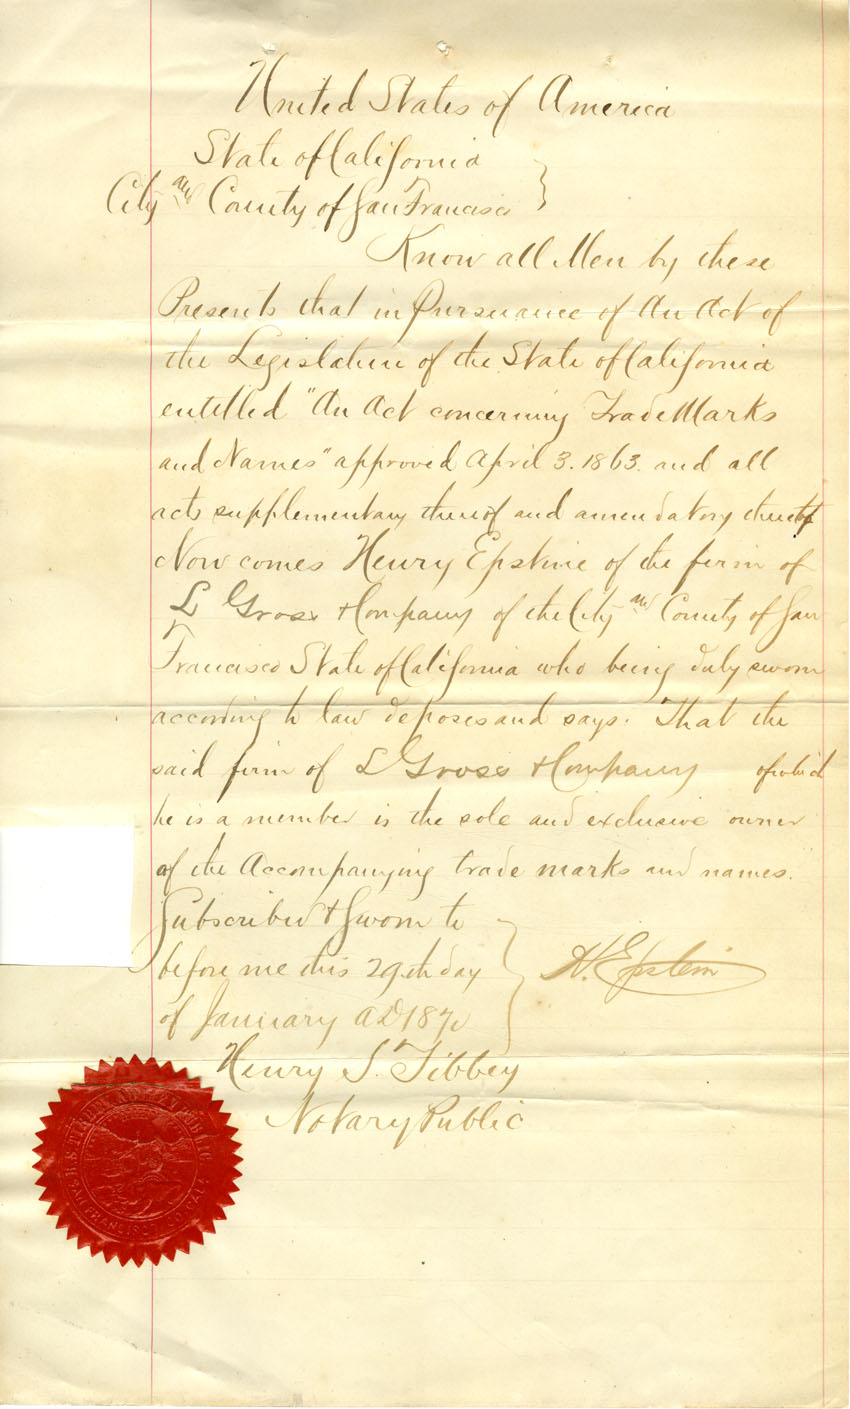 United States of America
State of California }
City and County of San Francisco
Know all Men by these
Presents that in Pursuance of An Act of
the Legislature of the State of California
entitled "An Act concerning Trade Marks
and Names" approved April 3. 1863. and all
acts supplementary thereof and amendatory thereof
Now comes Henry Epstine of the firm of
L Gross & Company of the City and County of San
Francisco State of California who being duly sworn
according to law deposes and says. That the
said firm of L Gross & Company of which
he is a member is the sole and exclusive owner
of the Accompanying trade marks and names.
Subscribed & Sworn to
before me this 29th day } H. Epstein
of January AD
Henry S. Tibbey
Notary Public
H. S. TIBBEY NOTARY PUBLIC
SAN FRANCISCO CO. CAL.